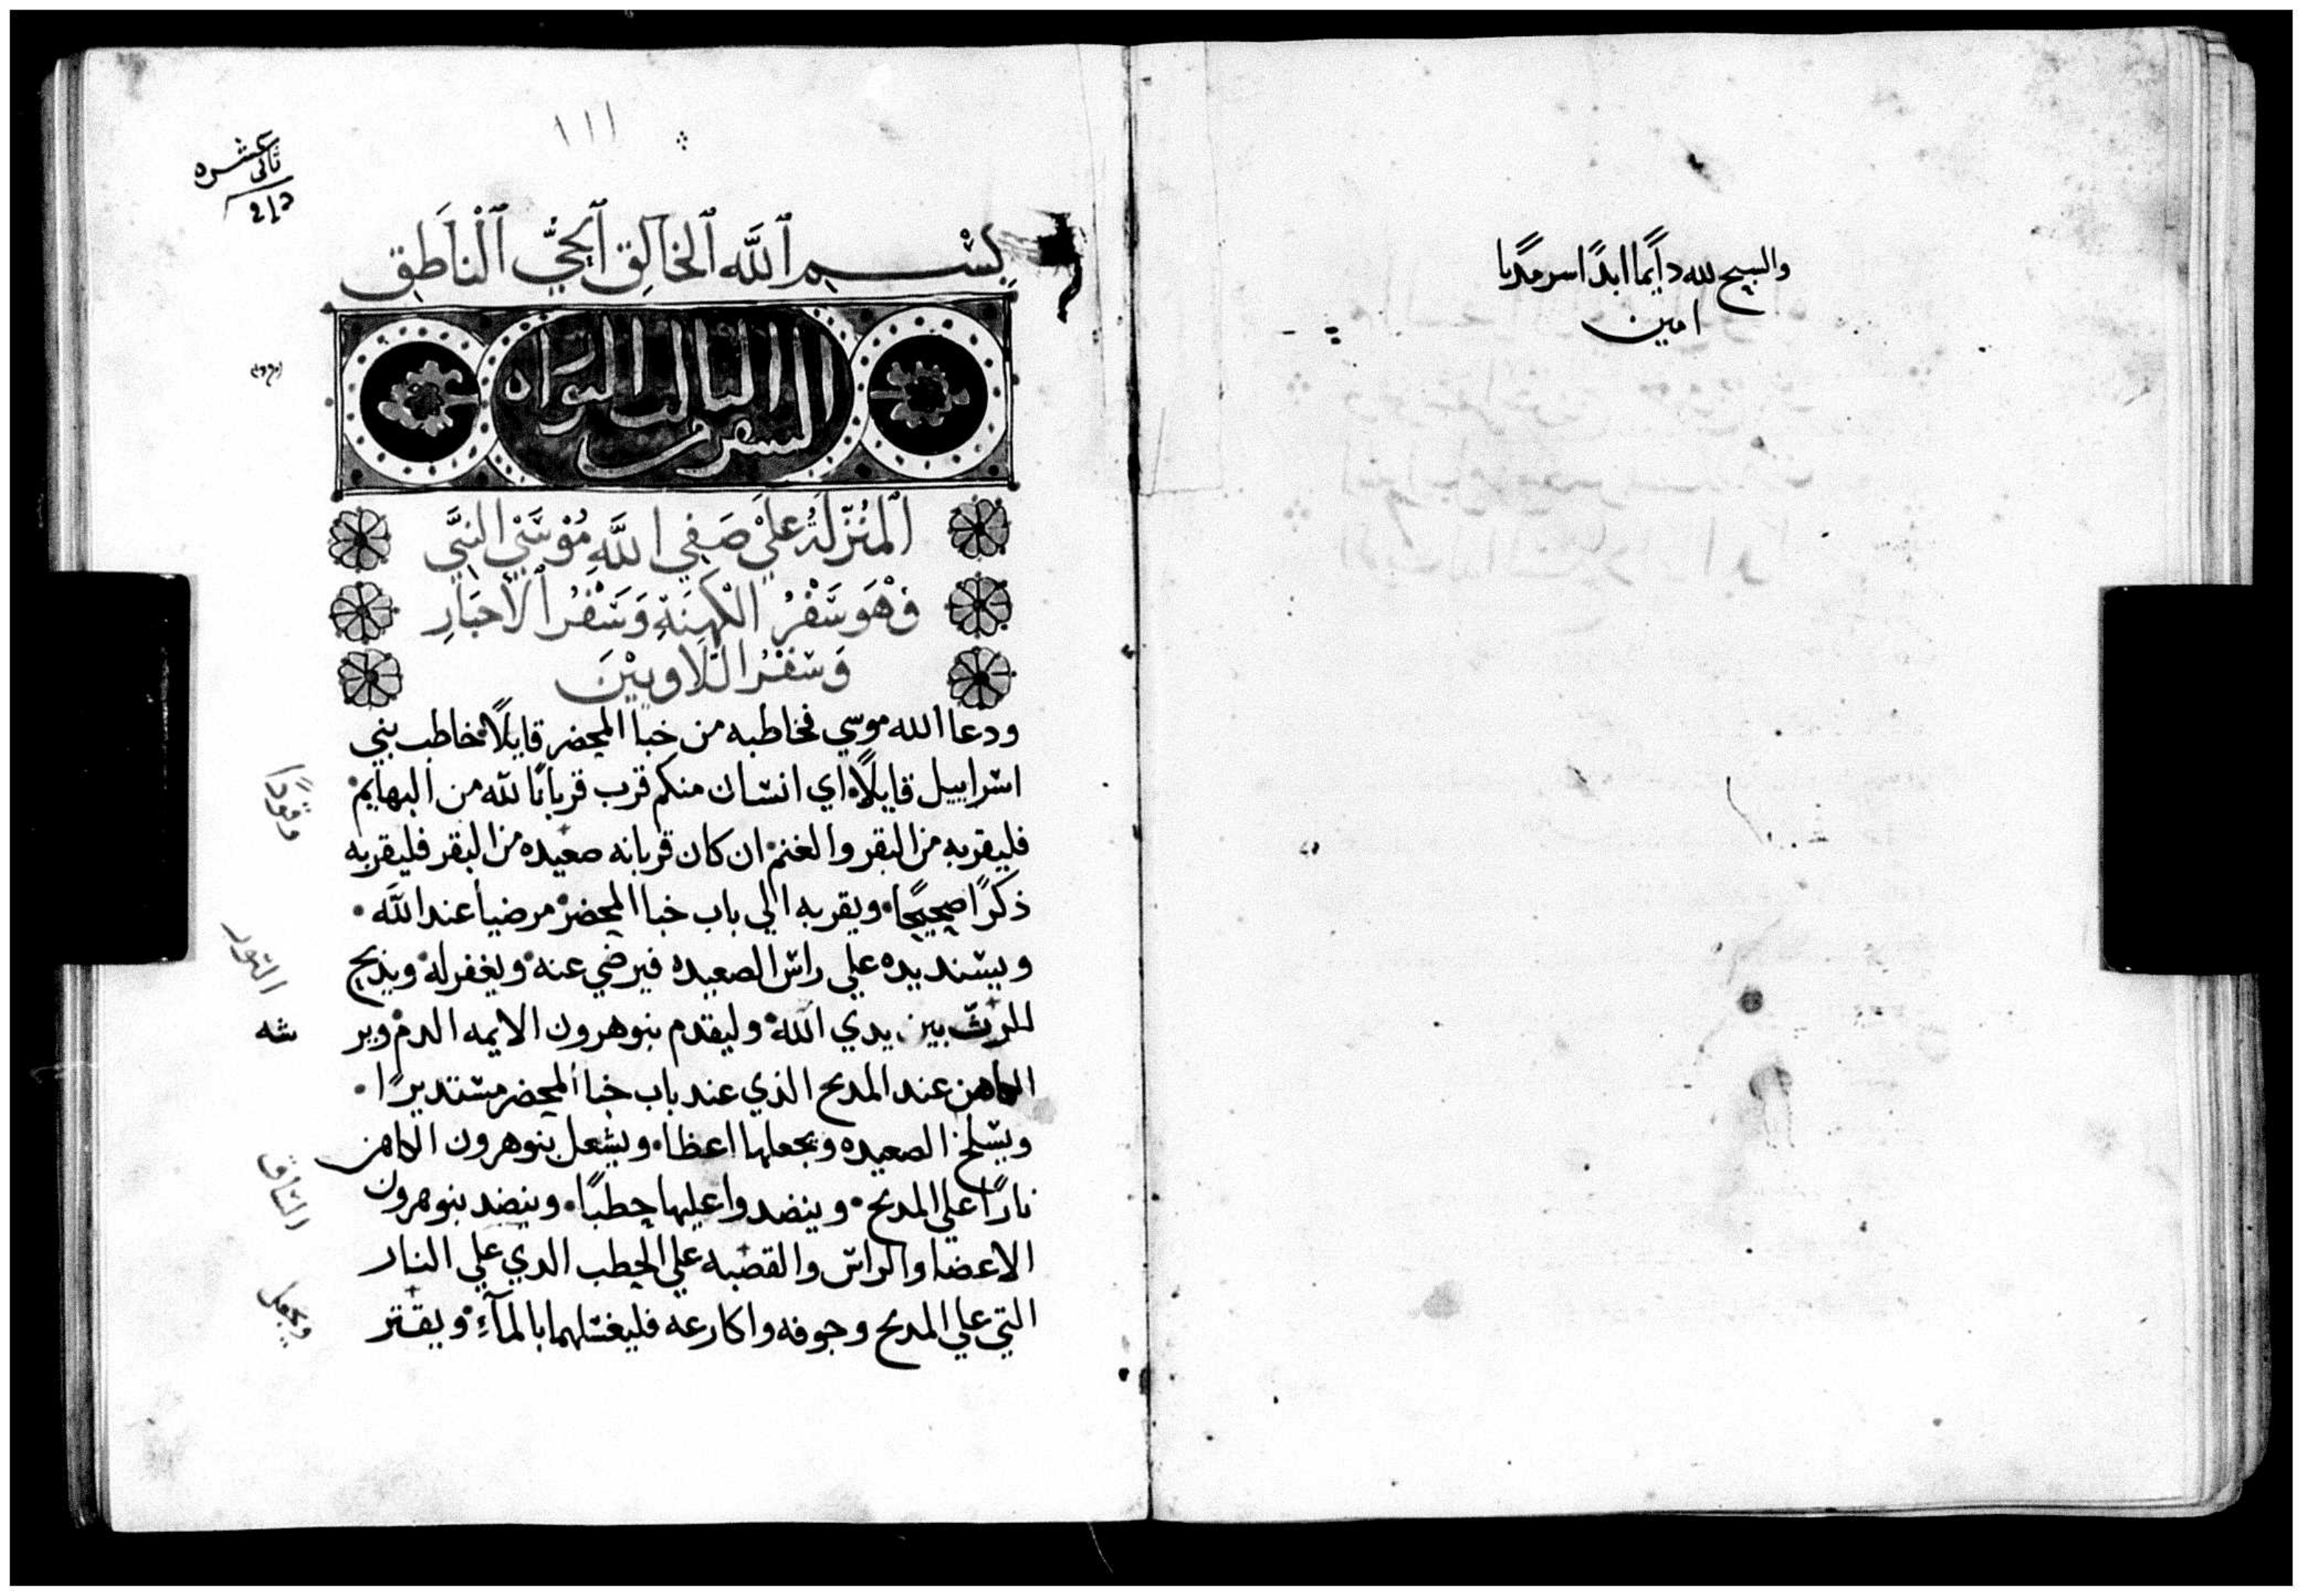 والسبح لله دايمًا ابدًا سرمديا
امين
١١١
ثاني عشره
بِسْمِ ٱللَّه ٱلخَالِق ٱلحَيُّ ٱلْنَاطِق
السفر الثالث من التوراه
ٱلمُنْزَلَةُ عَلَيْ صَفِي اللَّهِ مُوْسَيْ النَبَّي
وَهْوَ سَفْرُ الكَهِنَةِ وَسَفْرُ ٱلأَحْبَارِ
وَسْفْرُ اللَّاويْيْنَ
ودعا الله موسي فخاطبه من خبا المحضر قايلًا خاطب بني
اسراييل قايلًا اي انسان منكم قرب قربانًا لله من البهايم
فليقربه من البقر والغنم ان كان قربانه صعيده من البقر فليقربه
وقودًا
ذكرًا صحيحًا ويقربه الي باب خبا المحضر مرضيا عند اللَّه
ويسند يده علي راس الصعيده فيرضي عنه ويغفر له ويذبح
الثور
بين يدي الله وليقدم بنو هرون الايمه الدم وير
شه
الكاهن عند المدبح الذي عند باب خبا المحضر مستديرًا
ويسلخ الصعيده ويجعلها اعظا ويشعل بنو هرون الكاهن
نارًا علي المدبح وينضدوا عليها حطبًا وينضد بنو هرون
الاعضا والراس والقصبه علي الحطب الدي علي النار
التي علي المدبح وجوفه واكارعه فليغسلهما بالمآءِ ويقتر
ويجعل